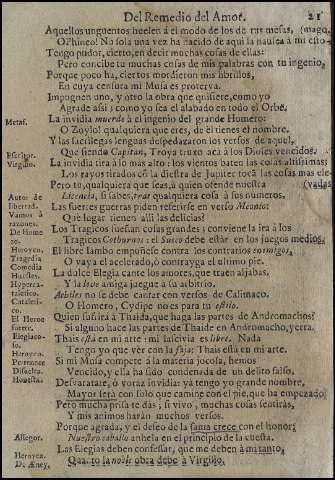 Del Remedio del Amor. 21
Aquellos unguentos huelen à el modo de los de tus mesas, (mago,
O Phineo! No sola una vez ha nacido de aqui la nausea à mi esto-
Tengo pudor, cierto, en decir muchas cosas de ellas:
Pero concibe tu muchas cosas de mis palabras con tu ingenio,
Porque poco ha, ciertos mordieron mis librillos,
En cuya censura mi Musa es proterva.
Impugnen uno, y otro la obra que quisiere, como yo
Agrade assi; como yo sea alabado en todo el Orbe.
Metaf. La invidia muerde à el ingenio del grande Homero:
O Zoylo! qualquiera que eres, de èl tienes el nombre.
Y las sacrilegas lenguas despedazaron los versos de aquel,
Que siendo Capitan, Troya truxo acà à los Dioses vencidos.
Virgilio. La invidia tira à lo mas alto: los vientos baten las cosas altissimas;
Los rayos tirados con la diestra de Jupiter tocà las cosas mas ele-
Pero tu, qualquiera que seas, à quien ofende nuestra (vadas
Autor de Licencia, si sabes, trae qualquiera cosa à sus numeros.
libertad. Las fieras guerras piden referirse en verso Meonio:
Vamos à Què lugar tienen alli las delicias?
razones. Los Tragicos suenan cosas grandes; conviene la ira à los
De Homero. Tragicos Cothurnos: el Sueco debe estàr en los juegos medios.
Heroyca. El libre Iambo empuñese contra los contrarios enemigos,
Tragedia O vaya el acelerado, ò contrayga el ultimo pie.
Comedia La dulce Elegia cante los amores, que traen aljabas,
Y la leve amiga juegue à su arbitrio.
Achiles no se debe cantar con versos de Calimaco.
O Homero, Cydipe no es para tu estilo.
El Heroe Quien sufrirà à Thaida, que haga las partes de Andromacho?
fuerte. Si alguno hace las partes de Thaide en Andromacho, yerra.
Elegiaco. Thais està en mi arte: mi lascivia es libre. Nada
Tengo yo que vèr con la faja: Thais està en mi arte.
Heroyco. Si mi Musa compete à la materia jocosa, hemos
Vencido, y ella ha sido condenada de un delito falso.
Desvaratate, ò voràz invidia: yà tengo yo grande nombre,
Mayor serà con solo que camine con el pie, que ha empezado;
Pero mucha prisa te das; si vivo, muchas cosas sentiràs,
Y mis animos haràn muchos versos.
Porque agrada, y el deseo de la fama crece con el honor:
Allegor. Nuestro caballo anhela en el principio de la cuesta.
Heroyca. Las Elegias deben confessar, que me deben à mi tanto,
De Æney, Quanto la noble obra debe à Virgilio.